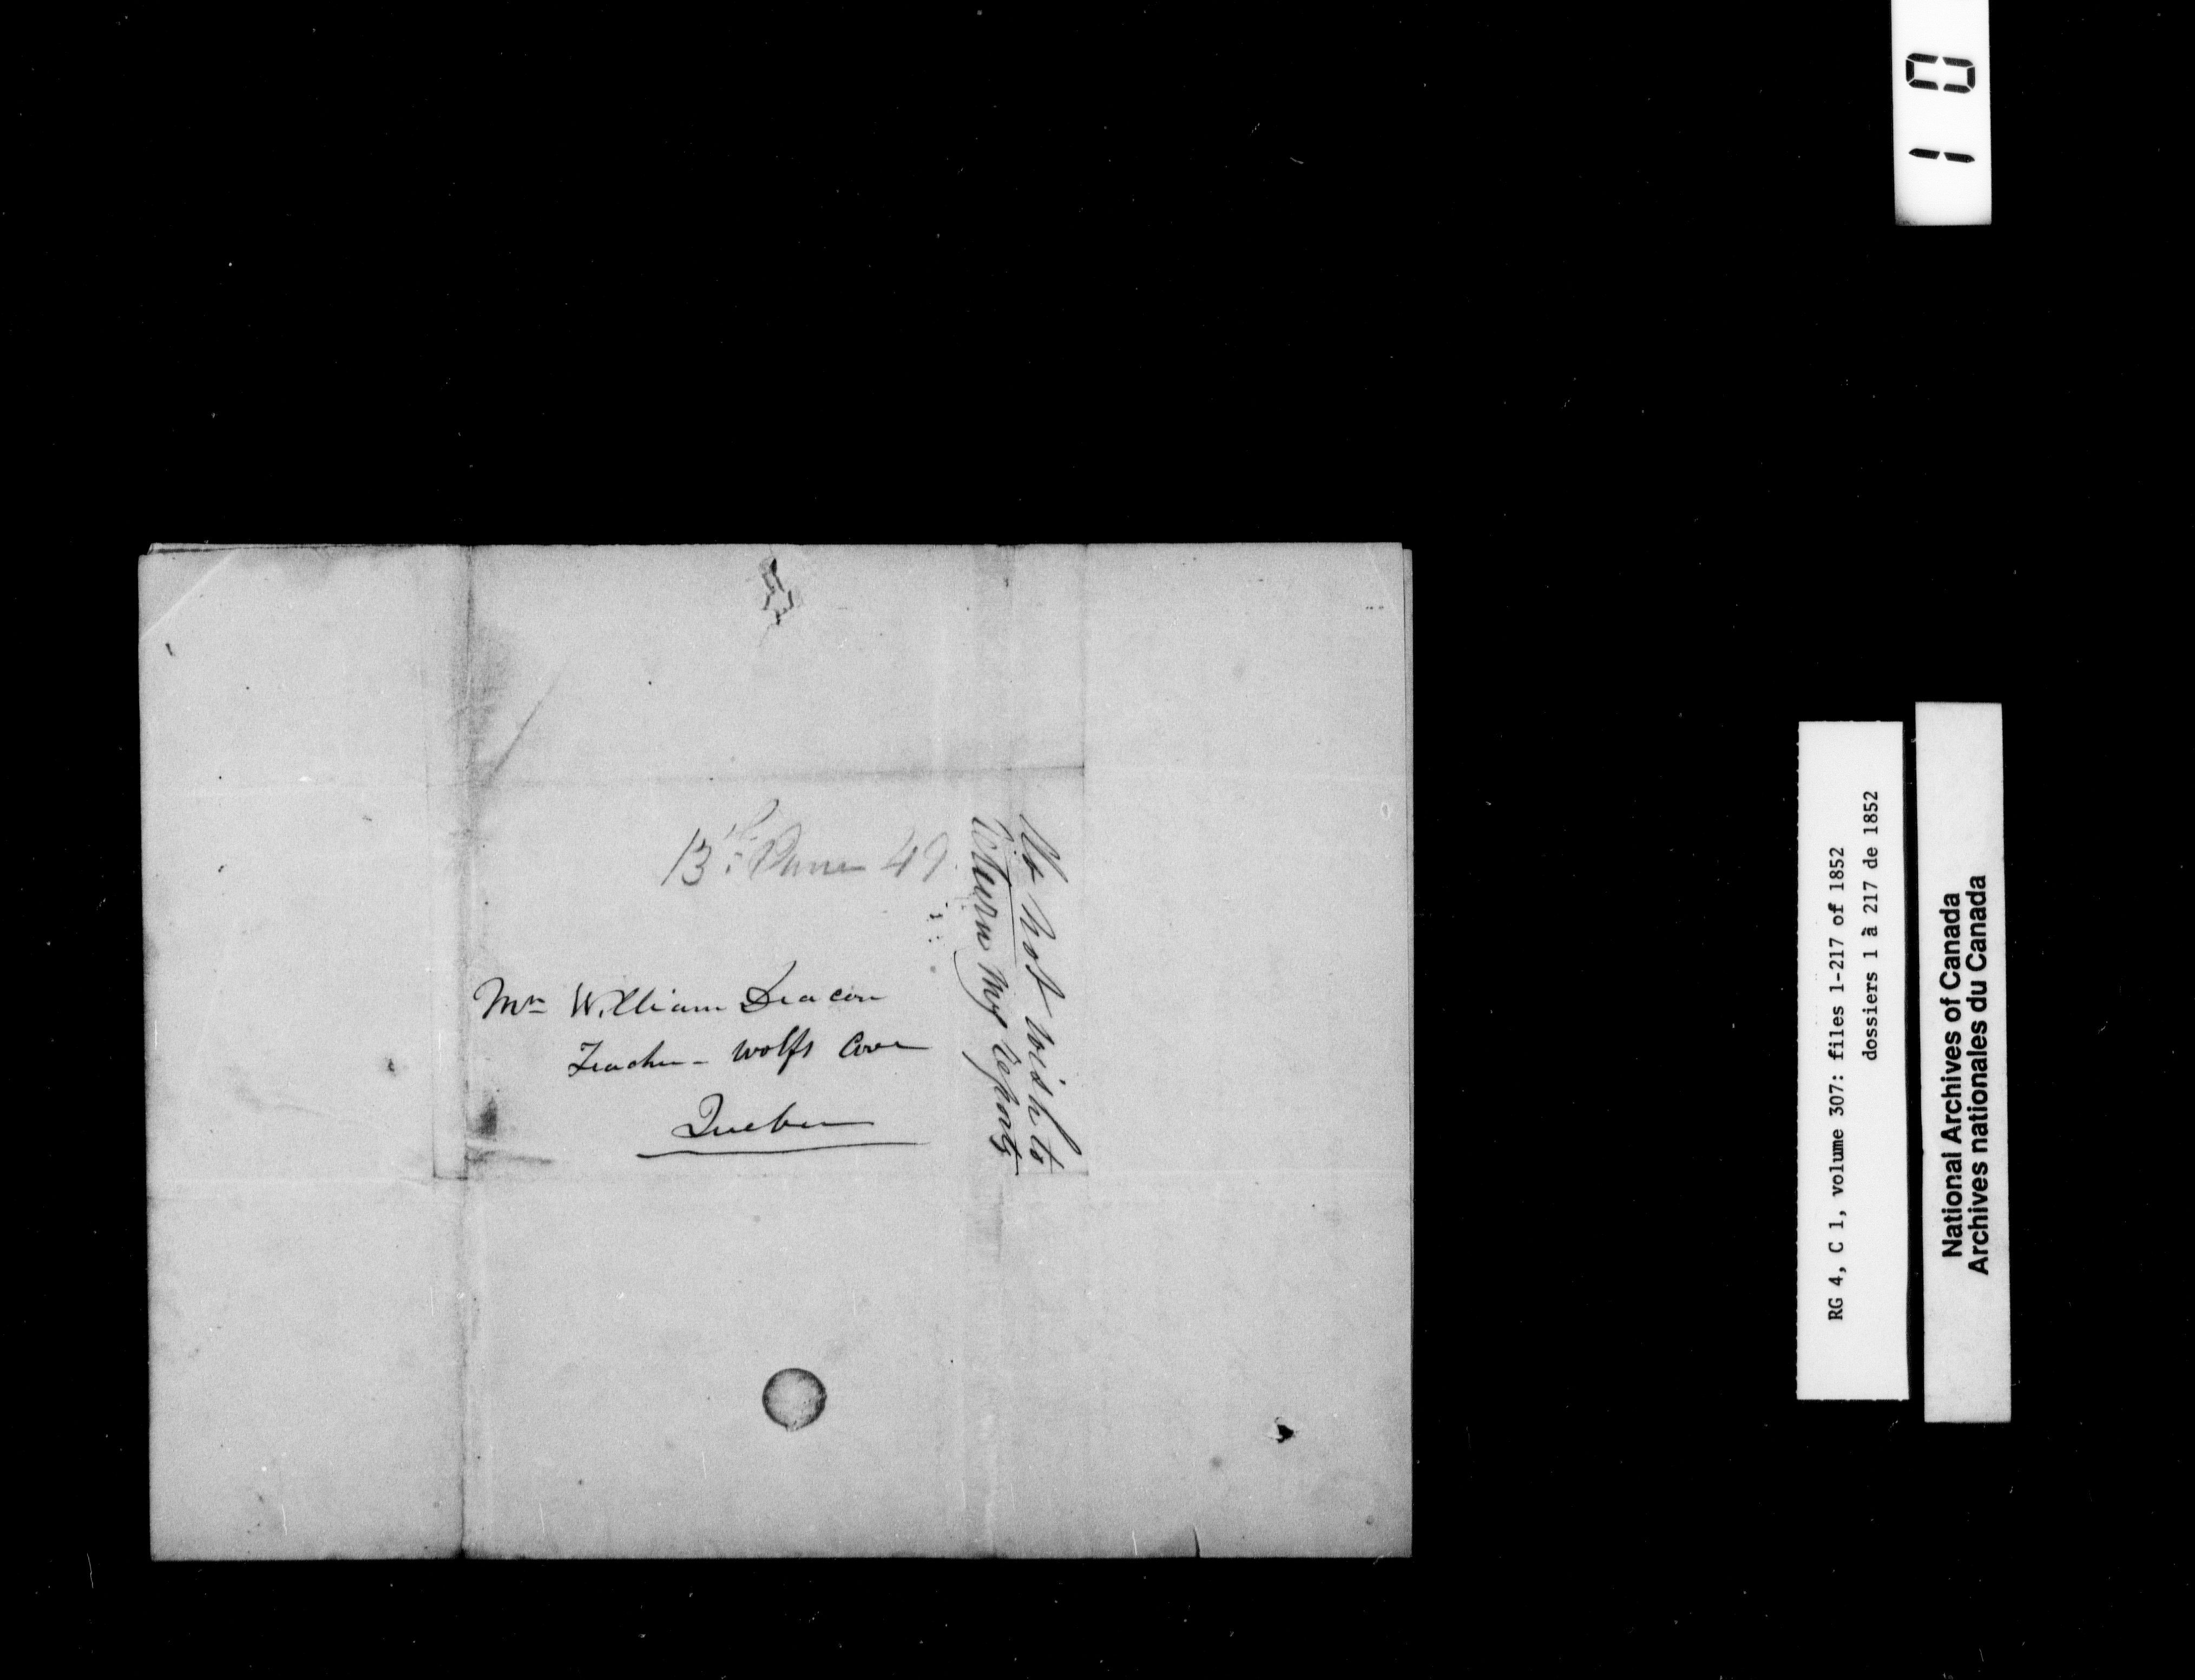 10
13th June 49
Mr William Deacon
Teacher - Wolfs Cove
Quebec
Do Not wish to
return my
RG 4, C 1, volume 307: files 1-217 of 1852
dossiers 1 à 217 de 1852
National Archives of Canada
Archives nationales du Canada